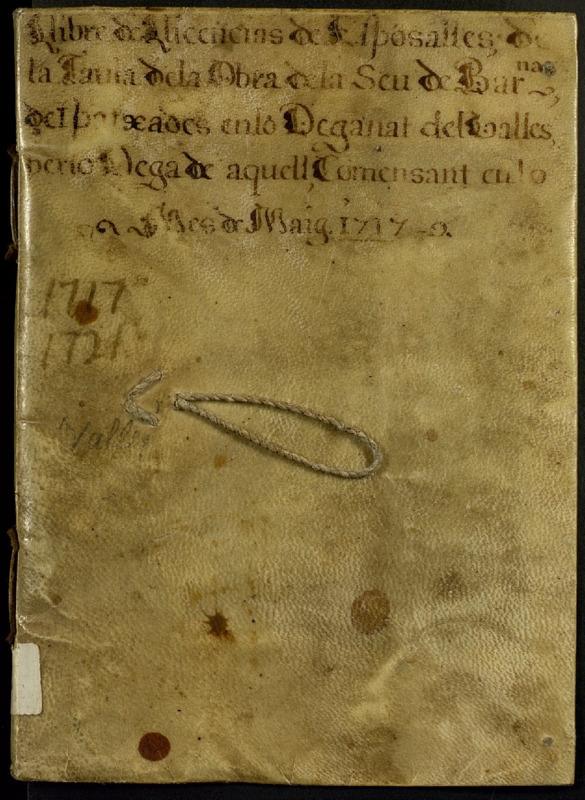 Llibre de Llicencias de Esposalles, de
la Taula dela Obra dela Seu de Barna,
en lo Deganat del Valles,
per lo Dega de aquell, Comensant en lo
Mes de Maig. 1717
1717
1721
Valles